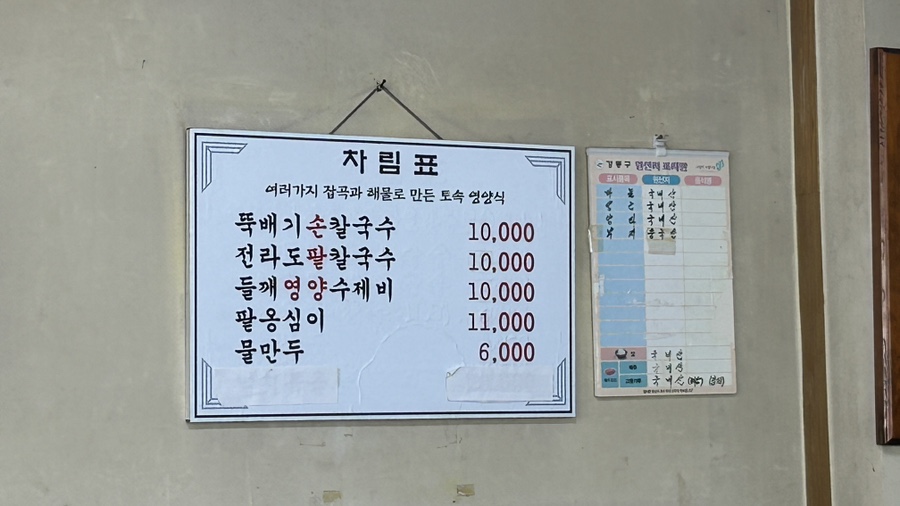 차림표
여러가지 잡곡과 해물로 만든 토속 영양식
뚝배기손칼국수 10,000
전라도팥칼국수 10,000
들깨영양수제비 10,000
팥옹심이 11,000
물만두 6,000
강동구 원산지 표시판
표시품목 원산지 음식명
국내산
국내산
국내산
중국산
쌀 국내산
국내산
고춧가루 국내산